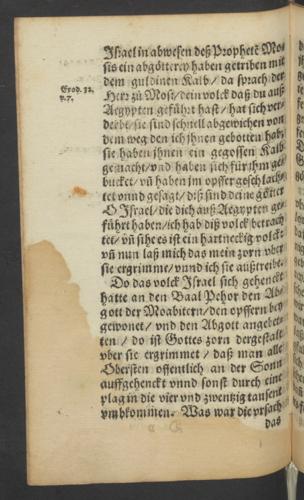 Israel in abwesen deß Prophetē Mo⸗
sis ein abgötterey haben getriben mit
dem guldinen Kalb / da sprach der
Exod. 32.
v. 7.
Herr zů Mose / dein volck daß du auß
Aegypten geführt hast / hat sich ver⸗
derbt / sie sind schnell abgewichen von
dem weg den ich jhnen gebotten hab /
sie haben jhnen ein gegossen Kalb
gemacht / vnd haben sich für jhm ge⸗
bucket / vñ haben im opffer geschlach⸗
tet vnnd gesagt / diß sind deine götter
O Israel / die dich auß Aegypten ge⸗
führt haben / ich hab diß volck betrach
tet / vñ sihe es ist ein hartneckig volck:
vñ nun laß mich das mein zorn vber
sie ergrimme / vnnd ich sie außtreibe.
Do das volck Israel sich gehenckt
hatte an den Baal Pehor den Ab⸗
gott der Moabitern / den opffern bey
gewonet / vnd den Abgott angebet⸗
ten / do ist Gottes zorn dergestalt
vber sie ergrimmet / daß man alle
Obersten offentlich an der Sonn
auffgehenckt vnnd sonst durch eine
plag in die vier vnd zwentzig tausent
vmbkommen. Was war die vrsach
das